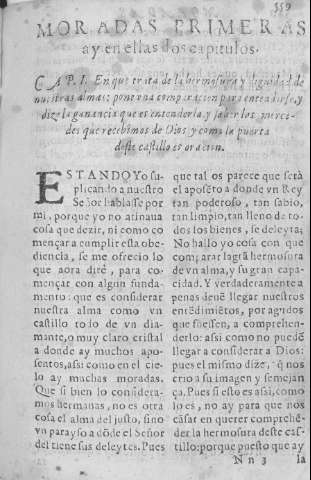 339
MORADAS PRIMERAS
ay en ellas dos capitulos.
CAP. I. En que trata de la hermosura y dignidad de
nuestras almas: pone una comparacion para entenderse, y
dize la ganancia que es entenderla, y saber las merce-
des que recebimos de Dios y como la puerta
deste castillo es oracion.
ESTANDO Yo su-
plicando a nuestro
Señor hablasse por
mi, porque yo no atinaua
cosa que dezir, ni como co
mençar a cumplir esta obe-
diencia, se me ofrecio lo
que aora diré, para co-
mençar con algun funda-
mento: que es considerar
nuestra alma como vn
castillo todo de vn dia-
mante, o muy claro cristal
a donde ay muchos apo-
sentos, assi como en el cie-
lo ay muchas moradas.
Que si bien lo considera-
mos hermanas, no es otra
cosa el alma del justo, sino
vn parayso a dõde el Señor
del tiene sus deleytes. Pues
que tal os parece que serà
el aposẽto a donde vn Rey
tan poderoso, tan sabio,
tan limpio, tan lleno de to-
dos los bienes, se deleyta;
No hallo yo cosa con que
comparar la grã hermosura
de vn alma, y su gran capa-
cidad. Y verdaderamente a
penas deuẽ llegar nuestros
entẽdimiẽtos, por agudos
que fuessen, a comprehen-
derlo: assi como no puedẽ
llegar a considerar a Dios:
pues el mismo dize, q̃ nos
crio a su imagen y semejan
ça. Pues si esto es assi, como
lo es, no ay para que nos
cãsar en querer comprehẽ-
der la hermosura deste cas-
tillo: porque puesto que ay
Nn 3 la